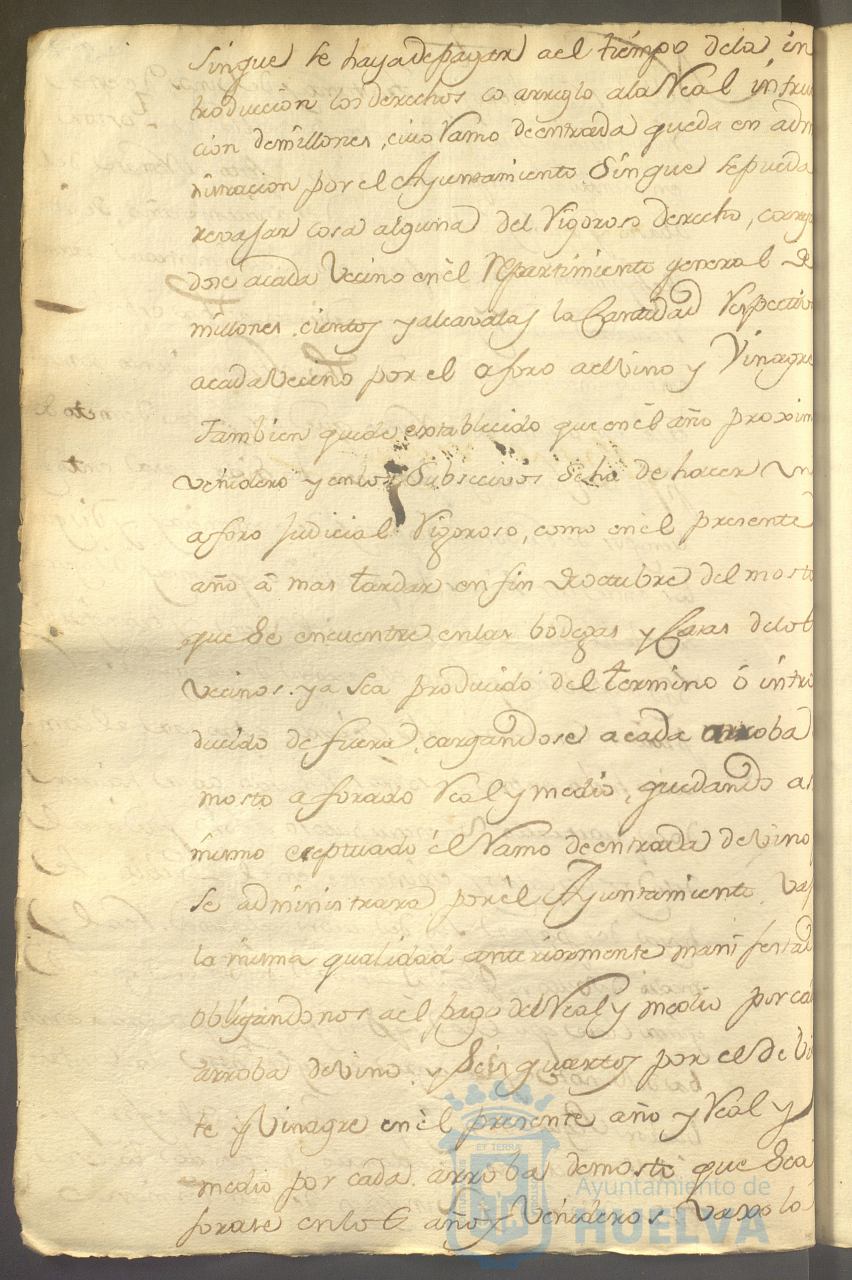 Sin que se haya de pagar a el tiempo de la in
troduccion los derechos co arreglo a la Real instru
cion de millones, cuio Ramo de entrada queda en admi
nistracion por el Ayuntamiento Sin que se pueda
revajar cosa alguna del Rigoroso derecho, cargan
dose a cada Vecino en el Repartimiento general de
millones, cientos y alcavalas la Cantidad Respectiva
a cada Vecino por el aforo del Vino y Vinagre
Tambien queda establecido que en el año proximo
venidero y en los Subsecivos Se ha de hacer un
aforo Judicial Rigoroso, como en el presente
año â mas tardar en fin de octubre del mosto
que Se encuentre en las bodegas y Casas de los
Vecinos. ya sea producido del termino ô intro
ducido de fuera, cargandose a cada arroba
mosto aforado Real y medio, quedando as
mismo eceptuado el Ramo de entrada de Vino
se administrara por el Ayuntamiento, vaj
la misma qualidad anteriormente manifestad
obligandonos a el pago del Real y medio por ca
arroba de Vino, y Seis quartos por el de Vi
te y Vinagre en el presente año y Real y
medio por cada arroba de mosto que Sea
forase en los 6 años Venideros vaxo lo
ET TERRAE
Ayuntamiento de
HUELVA